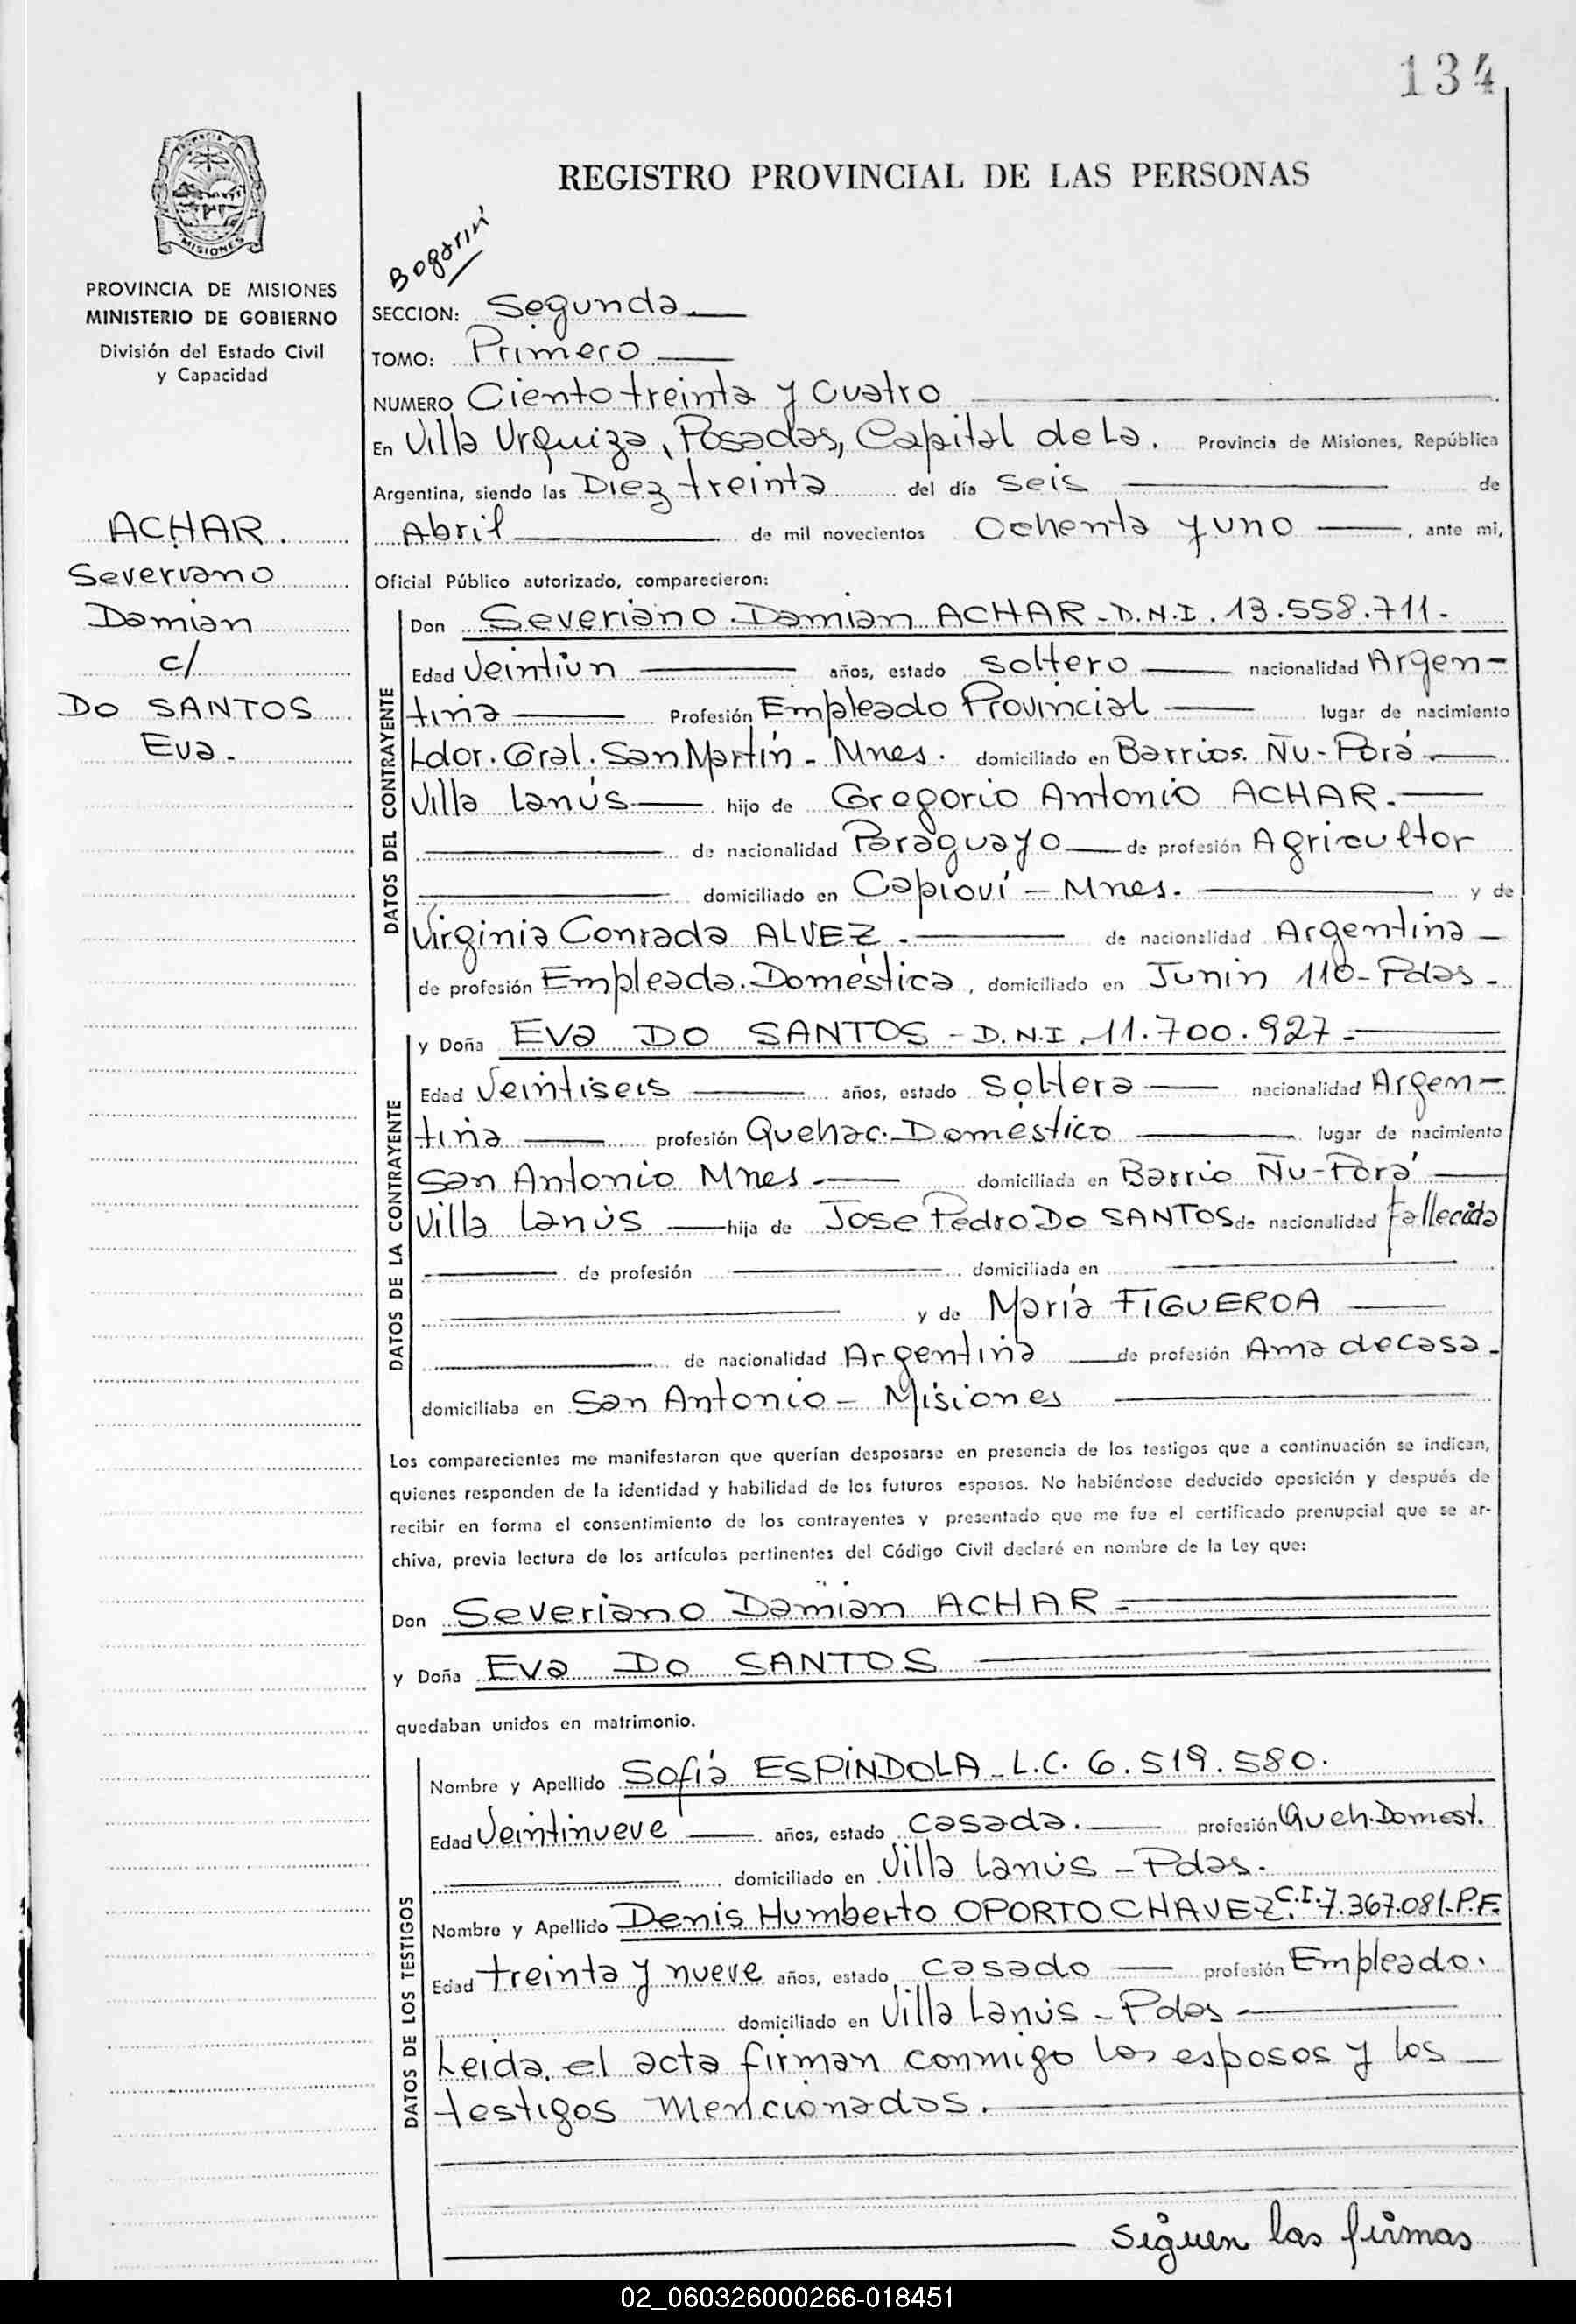 134
REGISTRO PROVINCIAL DE LAS PERSONAS
PROVINCIA DE MISIONES
MINISTERIO DE GOBIERNO
División del Estado Civil
y Capacidad
ACHAR.
Severiano
Damian
c/
Do SANTOS
Eva.
Bogarin
SECCION: Segunda
TOMO: Primero
NUMERO Ciento treinta y cuatro
En Villa Urquiza, Posadas, Capital de La. Provincia de Misiones, República
Argentina, siendo las Diez treinta del día seis de
Abril de mil novecientos Ochenta y uno, ante mi,
Oficial Público autorizado, comparecieron:
DATOS DEL CONTRAYENTE
Don Severiano Damian ACHAR - D.N.I. 13.558.711-
Edad Veintiun años, estado soltero nacionalidad Argen-
tina Profesión Empleado Provincial lugar de nacimiento
Ldor. Gral. San Martín - Mnes. domiciliado en Barrios. Ñu-Porá
Villa Lanús hijo de Gregorio Antonio ACHAR.
de nacionalidad Paraguayo de profesión Agricultor
domiciliado en Capioví - Mnes. y de
Virginia Conrada ALVEZ. de nacionalidad Argentina
de profesión Empleada. Doméstica, domiciliado en Junin 110-Pdas-
DATOS DE LA CONTRAYENTE
y Doña Eva DO SANTOS - D.N.I. 11.700.927-
Edad Veintiseis años, estado soltera nacionalidad Argen-
tina profesión Quehac. Doméstico lugar de nacimiento
San Antonio Mnes domiciliada en Barrio Ñu-Porá
Villa Lanús hija de Jose Pedro Do SANTOS de nacionalidad fallecido
de profesión domiciliada en
y de María FIGUEROA
de nacionalidad Argentina de profesión Ama de casa-
domiciliaba en San Antonio - Misiones
Los comparecientes me manifestaron que querían desposarse en presencia de los testigos que a continuación se indican,
quienes responden de la identidad y habilidad de los futuros esposos. No habiéndose deducido oposición y después de
recibir en forma el consentimiento de los contrayentes y presentado que me fue el certificado prenupcial que se ar-
chiva, previa lectura de los artículos pertinentes del Código Civil declaré en nombre de la Ley que:
Don Severiano Damian ACHAR
y Doña Eva Do SANTOS
quedaban unidos en matrimonio.
DATOS DE LOS TESTIGOS
Nombre y Apellido Sofía ESPINDOLA - L.C. 6.519.580.
Edad Veintinueve años, estado casada. profesión Queh. Domest.
domiciliado en Villa Lanús - Pdas.
Nombre y Apellido Denis Humberto OPORTO CHAVEZ. C.I. 7.367.081-P.F.
Edad treinta y nueve años, estado casado profesión Empleado.
domiciliado en Villa Lanús - Pdas
Leida, el acta firman conmigo los esposos y los
testigos mencionados.
Siguen las firmas
02_060326000266-018451